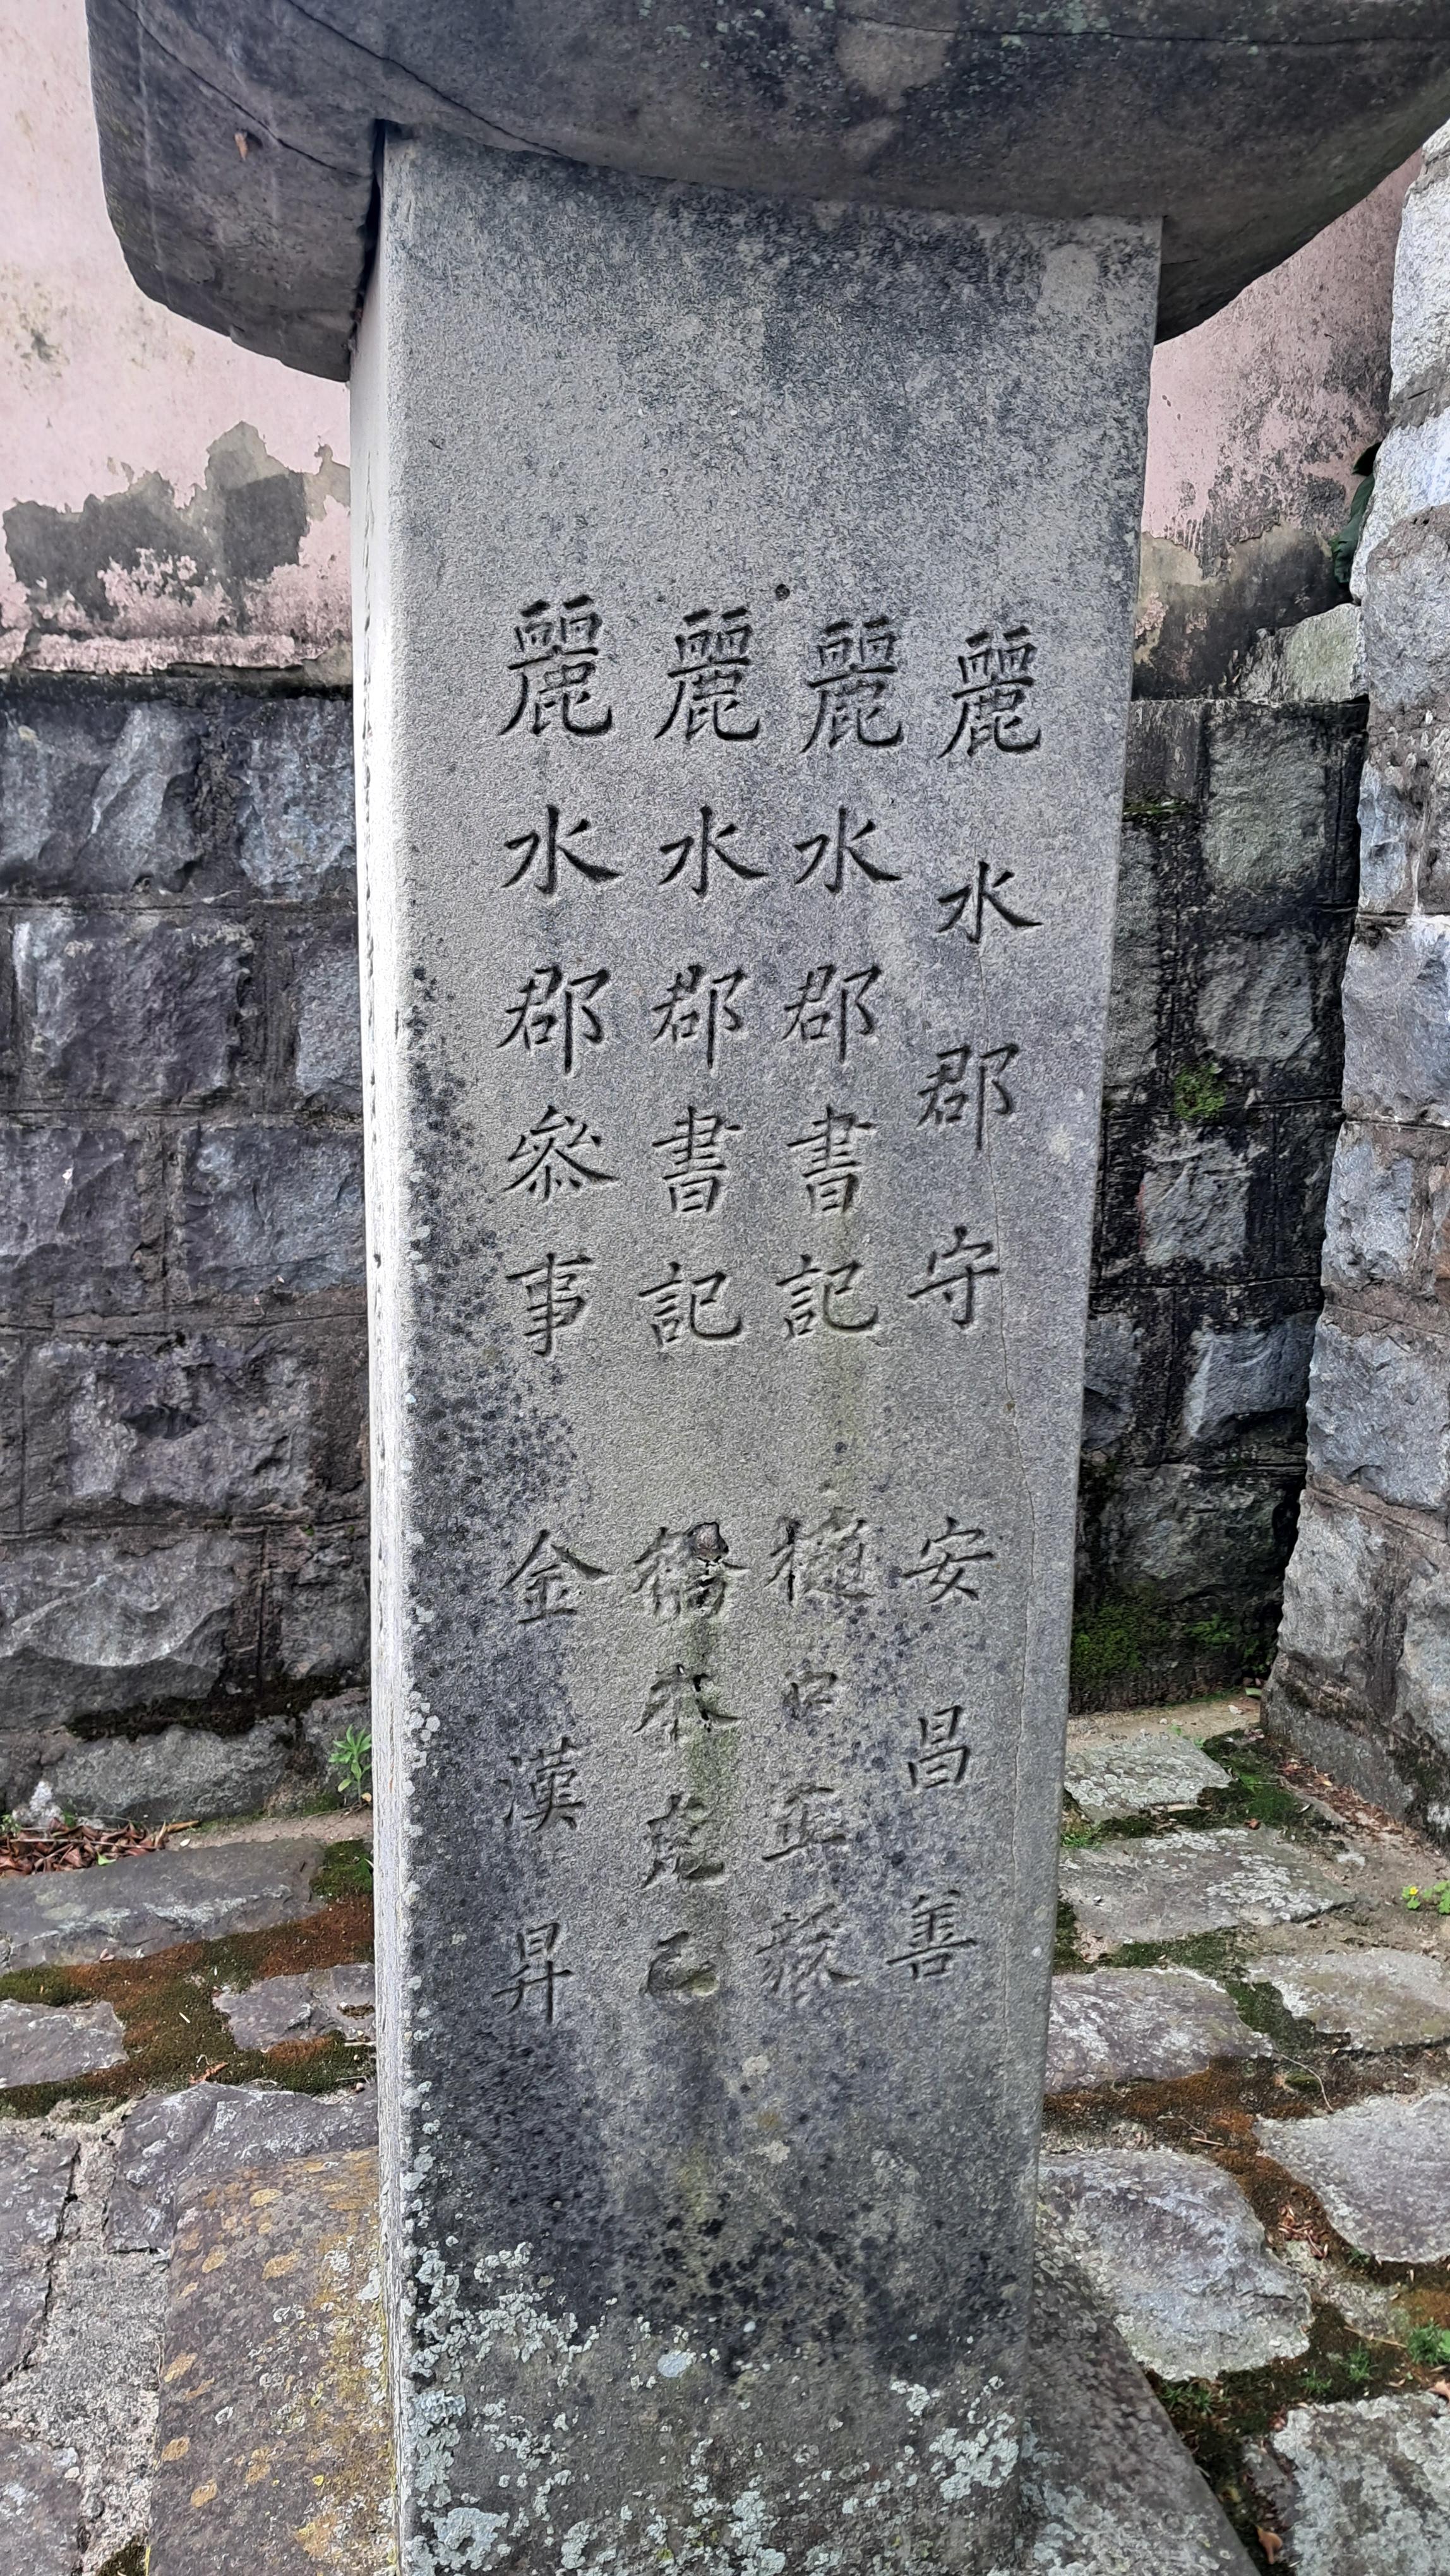 麗水郡守 安昌善
麗水郡書記 樋口正毅
麗水郡書記 橋本虎己
麗水郡參事 金漢昇